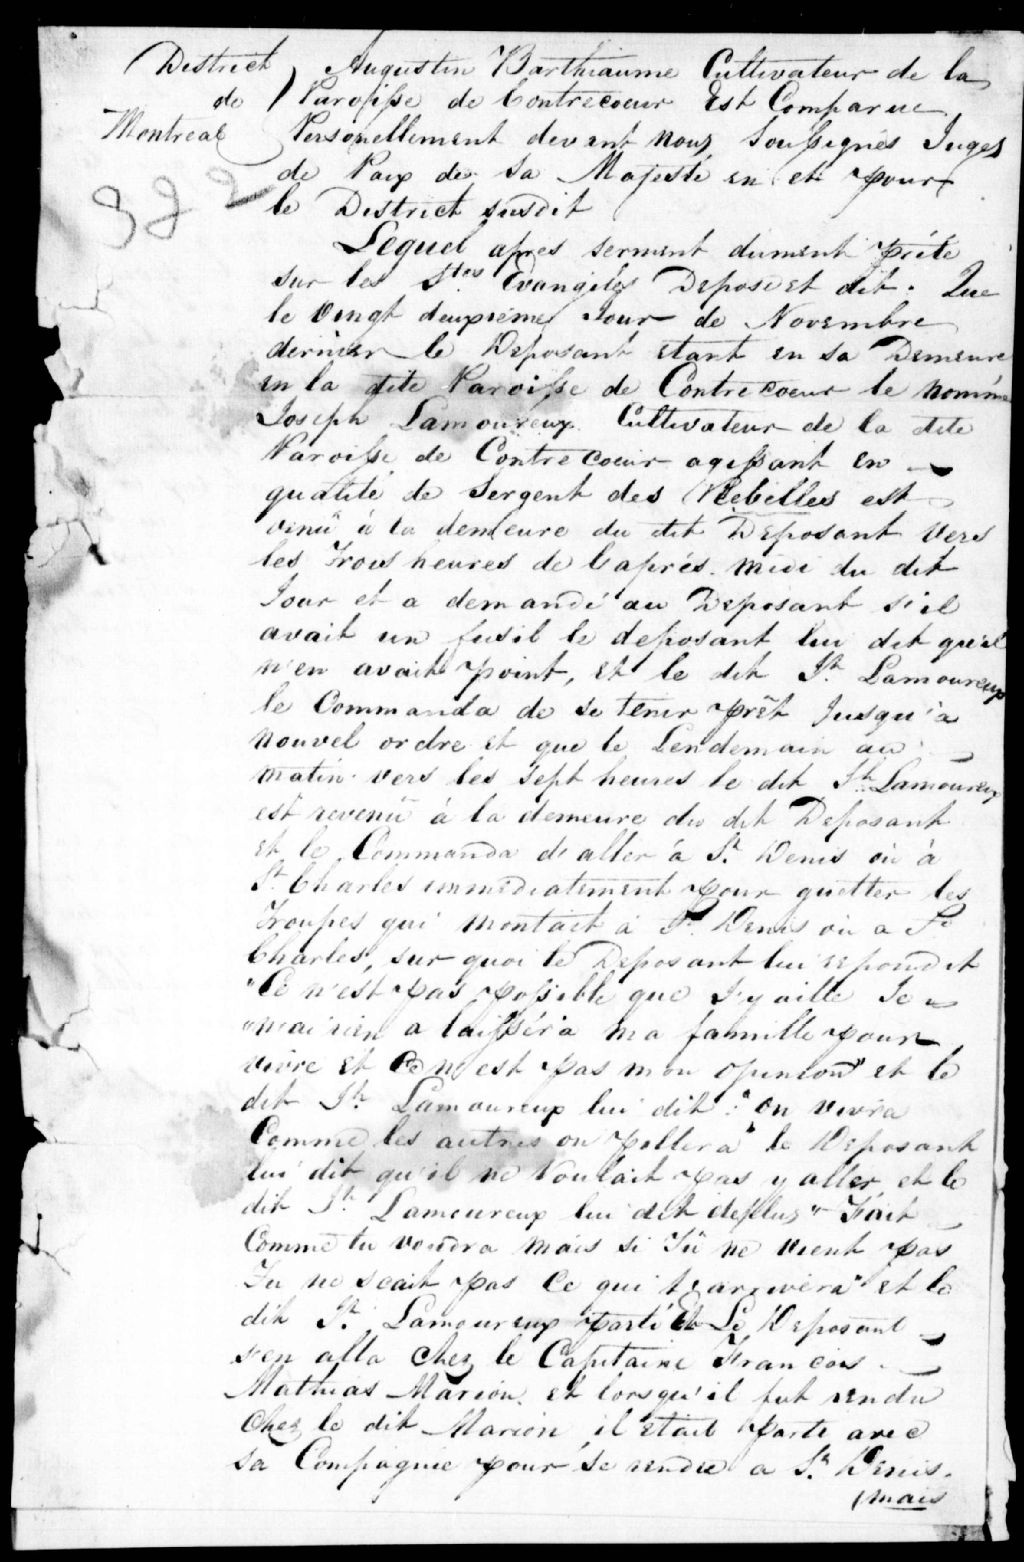 District
de
Montreal
982
Augustin Barthiaume Cultivateur de la
Paroisse de Contrecoeur Est Comparue
Personellement devent nous Soussignés Juges
de Paix de Sa Majesté en et pour
le District susdit
Lequel apres serment dument prété
sur les Stes Evangiles Depose et dit. Que
le Vingt deuxiéme Jour de Novembre
dernier le Deposant etant en sa Demeure
en la dite Paroisse de Contrecoeur le nommé
Joseph Lamoureux Cultivateur de la dite
Paroisse de Contrecoeur agissant en
qualité de Sergent des Rebelles est
venu à la demeure du dit Deposant vers
les Trois heures de l'aprés midi du dit
Jour et a demandé au Deposant s'il
avait un fusil le deposant lui dit qu'il
n'en avait point, et le dit Jh. Lamoureux
le Commanda de se tenir prêt Jusqu'à
nouvel ordre et que le Lendemain au
matin vers les sept heures le dit Jh. Lamoureux
est revenu à la demeure du dit Deposant
et le Commanda d'aller à St. Denis où à
St. Charles immediatement pour guetter les
Troupes qui montait à St. Denis ou a St
Charles, sur quoi le Deposant lui repondit
"Ce n'est pas possible que J'y aille Je
n'ai rien a laisser à ma famille pour
vivre et Ce n'est pas mon opinion" et le
dit Jh. Lamoureux lui dit: "on vivra
Comme les autres on pillera" le Deposant
lui dit qu'il ne voulait pas y aller et le
dit Jh. Lamoureux lui dit deplus "Fait
Comme tu voudra mais si Tu ne vient pas
Tu ne scait pas Ce qui t'arrivera" et le
dit Jh. Lamoureux parti Et Le Deposant
s'en alla chez le Capitaine Francois
Mathias Marion et lorsqu'il fut rendu
Chez le dit Marion il etait parti avec
sa Compagnie pour se rendre a St. Denis.
mais